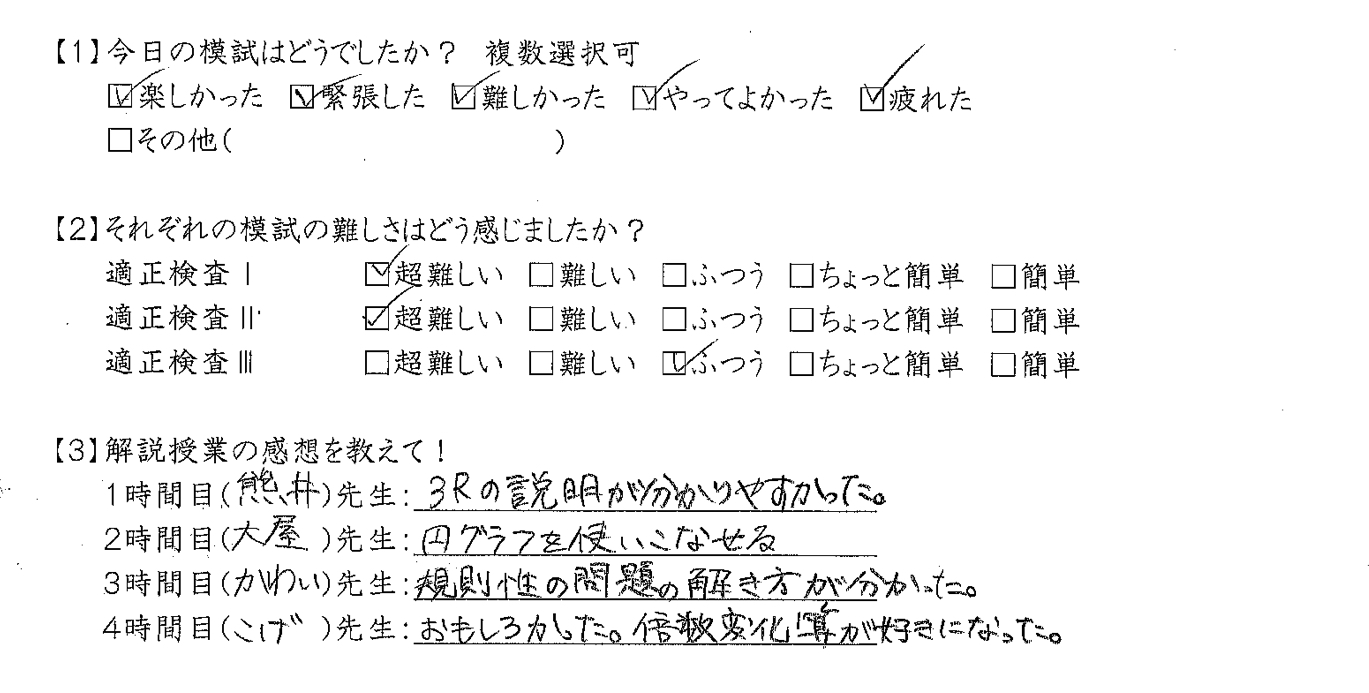 【1】今日の模試はどうでしたか？ 複数選択可
☑楽しかった ☑緊張した ☑難しかった ☑やってよかった ☑疲れた
□その他( )
【2】それぞれの模試の難しさはどう感じましたか？
適正検査Ⅰ ☑超難しい □難しい □ふつう □ちょっと簡単 □簡単
適正検査Ⅱ ☑超難しい □難しい □ふつう □ちょっと簡単 □簡単
適正検査Ⅲ □超難しい □難しい ☑ふつう □ちょっと簡単 □簡単
【3】解説授業の感想を教えて！
1時間目(熊井)先生：3Rの説明が分かりやすかった。
2時間目(大屋 )先生：円グラフを使いこなせる
3時間目(かわい)先生：規則性の問題の解き方が分かった。
4時間目(こげ )先生：おもしろかした。倍数変化算が好きになった。